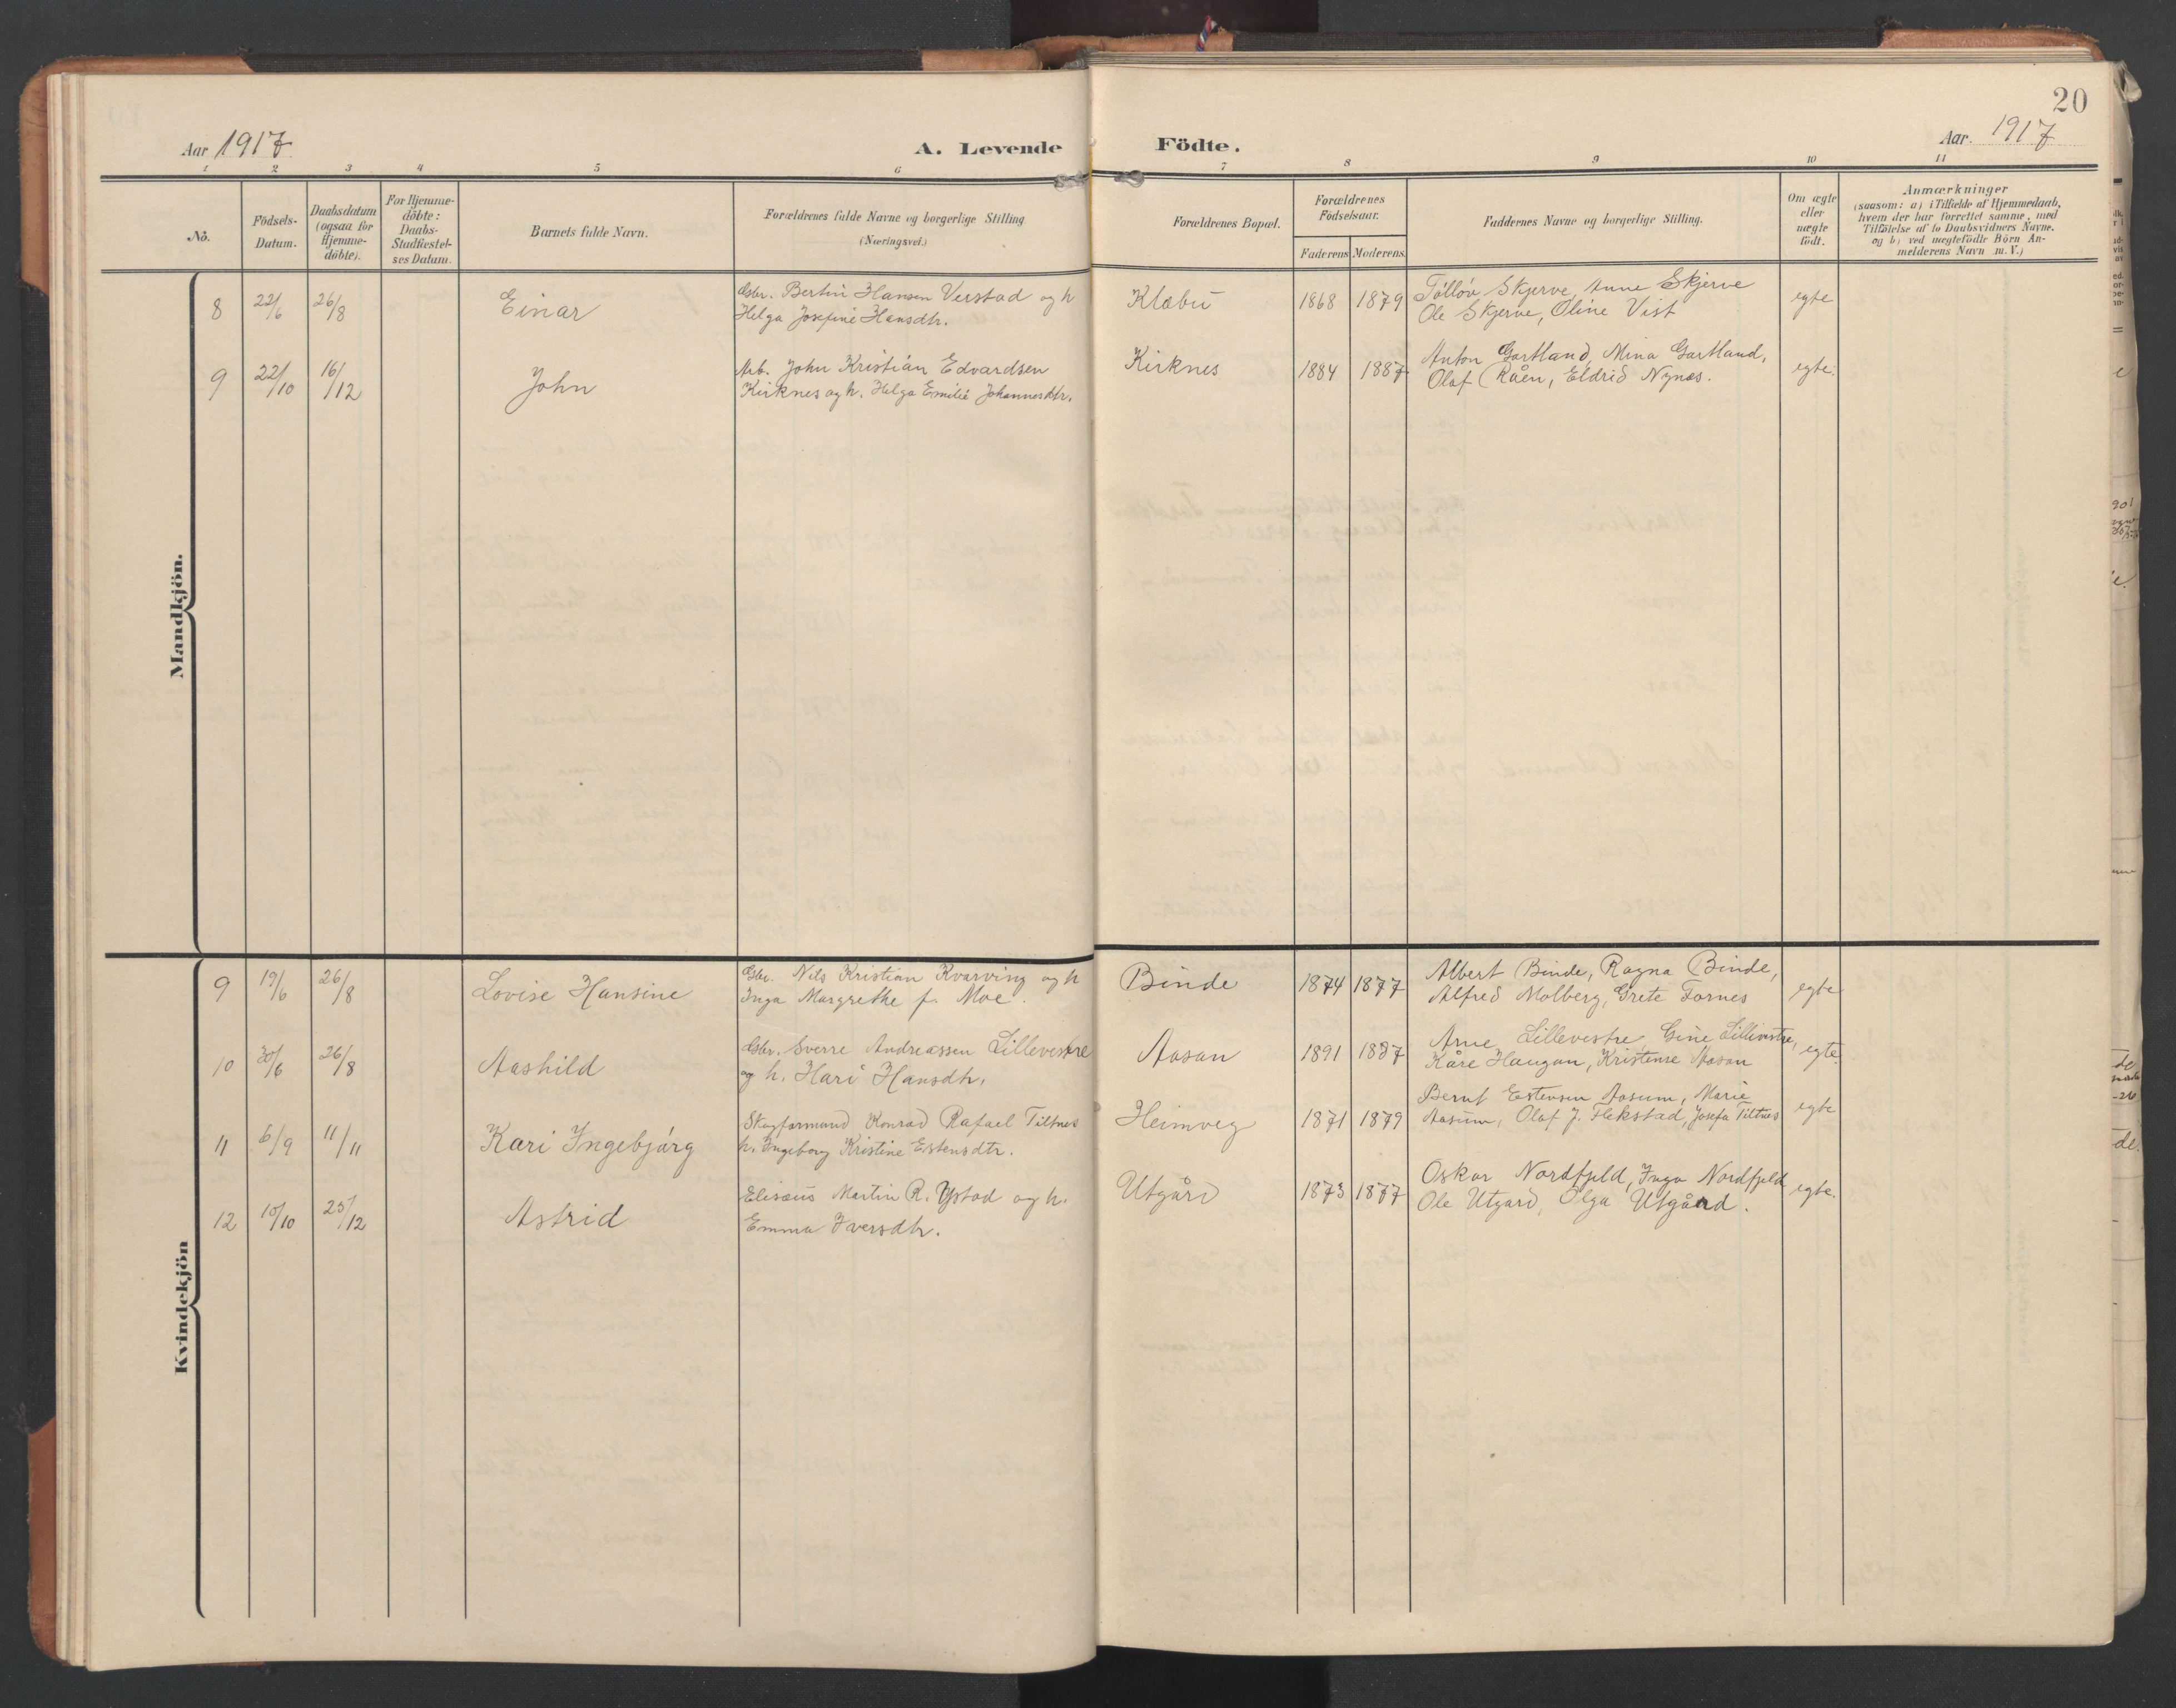 20
Aar 1917
A. Levende Födte.
Aar. 1917
1 2 3 4 5 6 7 8 9 10 11
No.
Födsels-Datum.
Daabsdatum (ogsaa for Hjemme-döbte).
For Hjemme-döbte: Daabs-Stadfæstel-ses Datum.
Barnets fulde Navn.
Forældrenes fulde Navne og borgerlige Stilling
(Næringsvei.)
Forældrenes Bopæl.
Forældrenes Födselsaar.
Faderens Moderens.
Faddernes Navne og borgerlige Stilling.
Om ægte eller uægte födt.
Anmærkninger
(saasom: a) i Tilfælde af Hjemmedaab,
hvem der har forrettet samme, med
Tilföielse af to Daabsvidners Navne.
og b) ved uægtefödte Börn An-
melderens Navn m. V.)
Mandkjön.
8 22/6 26/8 Einar Gbr. Bertin Hansen Verstad og h Klæbu 1868 1879 Tolløv Skjerve, Anne Skjerve egte
Helga Josefine Hansdtr. Ole Skjerve, Oline Vist
9 22/10 16/12 John Arb. John Kristian Edvardsen Kirknes 1884 1887 Anton Gartland, Mina Gartland, egte.
Kirknes og h. Helga Emilie Johannesdtr. Olaf Råen, Eldrid Nynes.
Kvindekjön
9 19/6 26/8 Lovise Hansine Gbr. Nils Kristian Kvarving og h Binde 1874 1877 Albert Binde, Ragna Binde, egte
Inga Margrethe f. Moe. Alfred Molberg, Grete Fornes
10 30/6 26/8 Aashild Gbr. Sverre Andreassen Lillevestre Aasan 1891 1887 Arne Lillevestre, Gine Lillevestre, egte.
og h. Kari Hansdtr. Kåre Haugan, Kristense Aasan
11 6/9 11/11 Kari Ingebjørg Skogformand Konrad Rafael Tiltnes Heimveg 1871 1879 Bernt Estensen Aasum, Marie egte
h. Ingeborg Kristine Estensdtr. Aasum, Olaf J. Flekstad, Josefa Tiltnes
12 10/10 25/12 Astrid Elisæus Martin R. Ystad og h. Utgård 1873 1877 Oskar Nordfjeld, Inga Nordfjeld egte.
Emma Iversdtr. Ole Utgård, Olga Utgård.